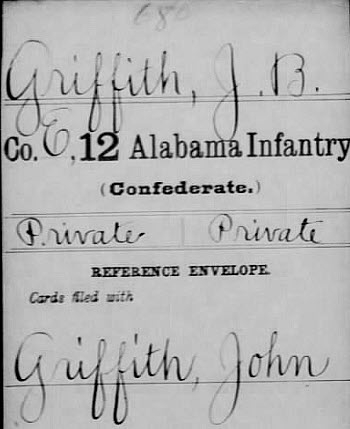 680
Griffith, J. B.
Co. E, 12 Alabama Infantry
(Confederate.)
Private Private
REFERENCE ENVELOPE.
Cards filed with
Griffith, John